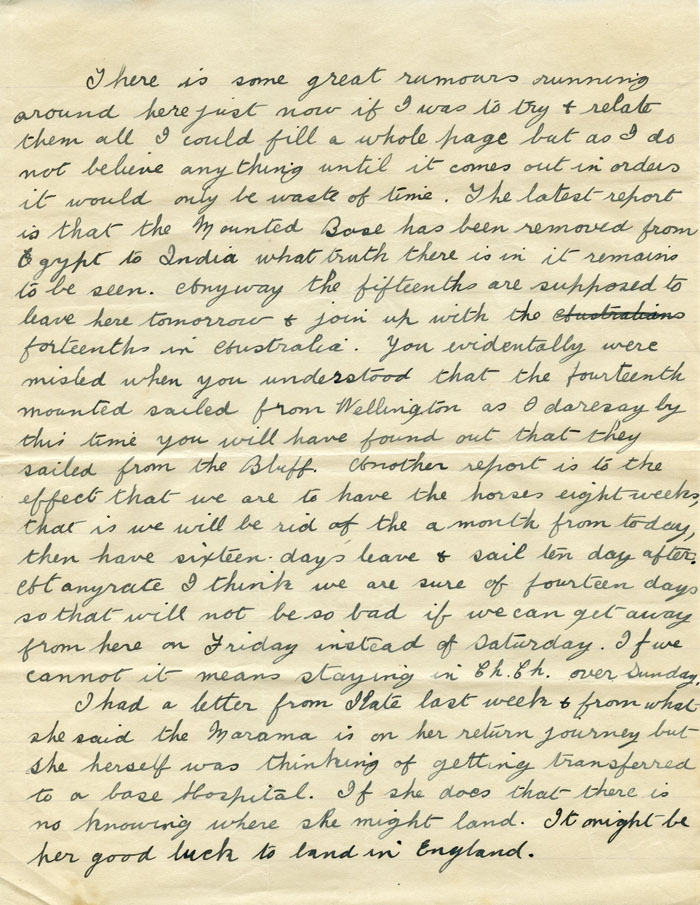 There is some great rumours running
around here just now if I was to try & relate
them all I could fill a whole page but as I do
not believe anything until it comes out in orders
it would only be waste of time. The latest report
is that the Mounted Base has been removed from
Egypt to India what truth there is in it remains
to be seen. Anyway the fifteenths are supposed to
leave here tomorrow & join up with the Australians
forteenths in Australia. You evidentally were
misled when you understood that the fourteenth
mounted sailed from Wellington as I daresay by
this time you will have found out that they
sailed from the Bluff. Another report is to the
effect that we are to have the horses eight weeks,
that is we will be rid of the a month from today,
then have sixteen days leave & sail ten day after.
At anyrate I think we are sure of fourteen days
so that will not be so bad if we can get away
from here on Friday instead of Saturday. If we
cannot it means staying in Ch. Ch. over Sunday.
I had a letter from Kate last week & from what
she said the Marama is on her return journey but
she herself was thinking of getting transferred
to a base Hospital. If she does that there is
no knowing where she might land. It might be
her good luck to land in England.